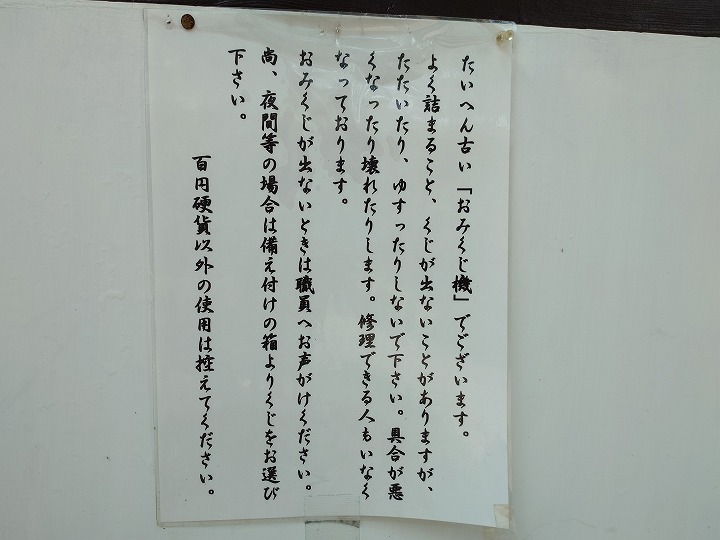 たいへん古い「おみくじ機」でございます。
よく詰まること、くじが出ないことがありますが、
たたいたり、ゆすったりしないで下さい。具合が悪
くなったり壊れたりします。修理できる人もいなく
なっております。
おみくじが出ないときは職員へお声がけください。
尚、夜間等の場合は備え付けの箱よりくじをお選び
下さい。
百円硬貨以外の使用は控えてください。